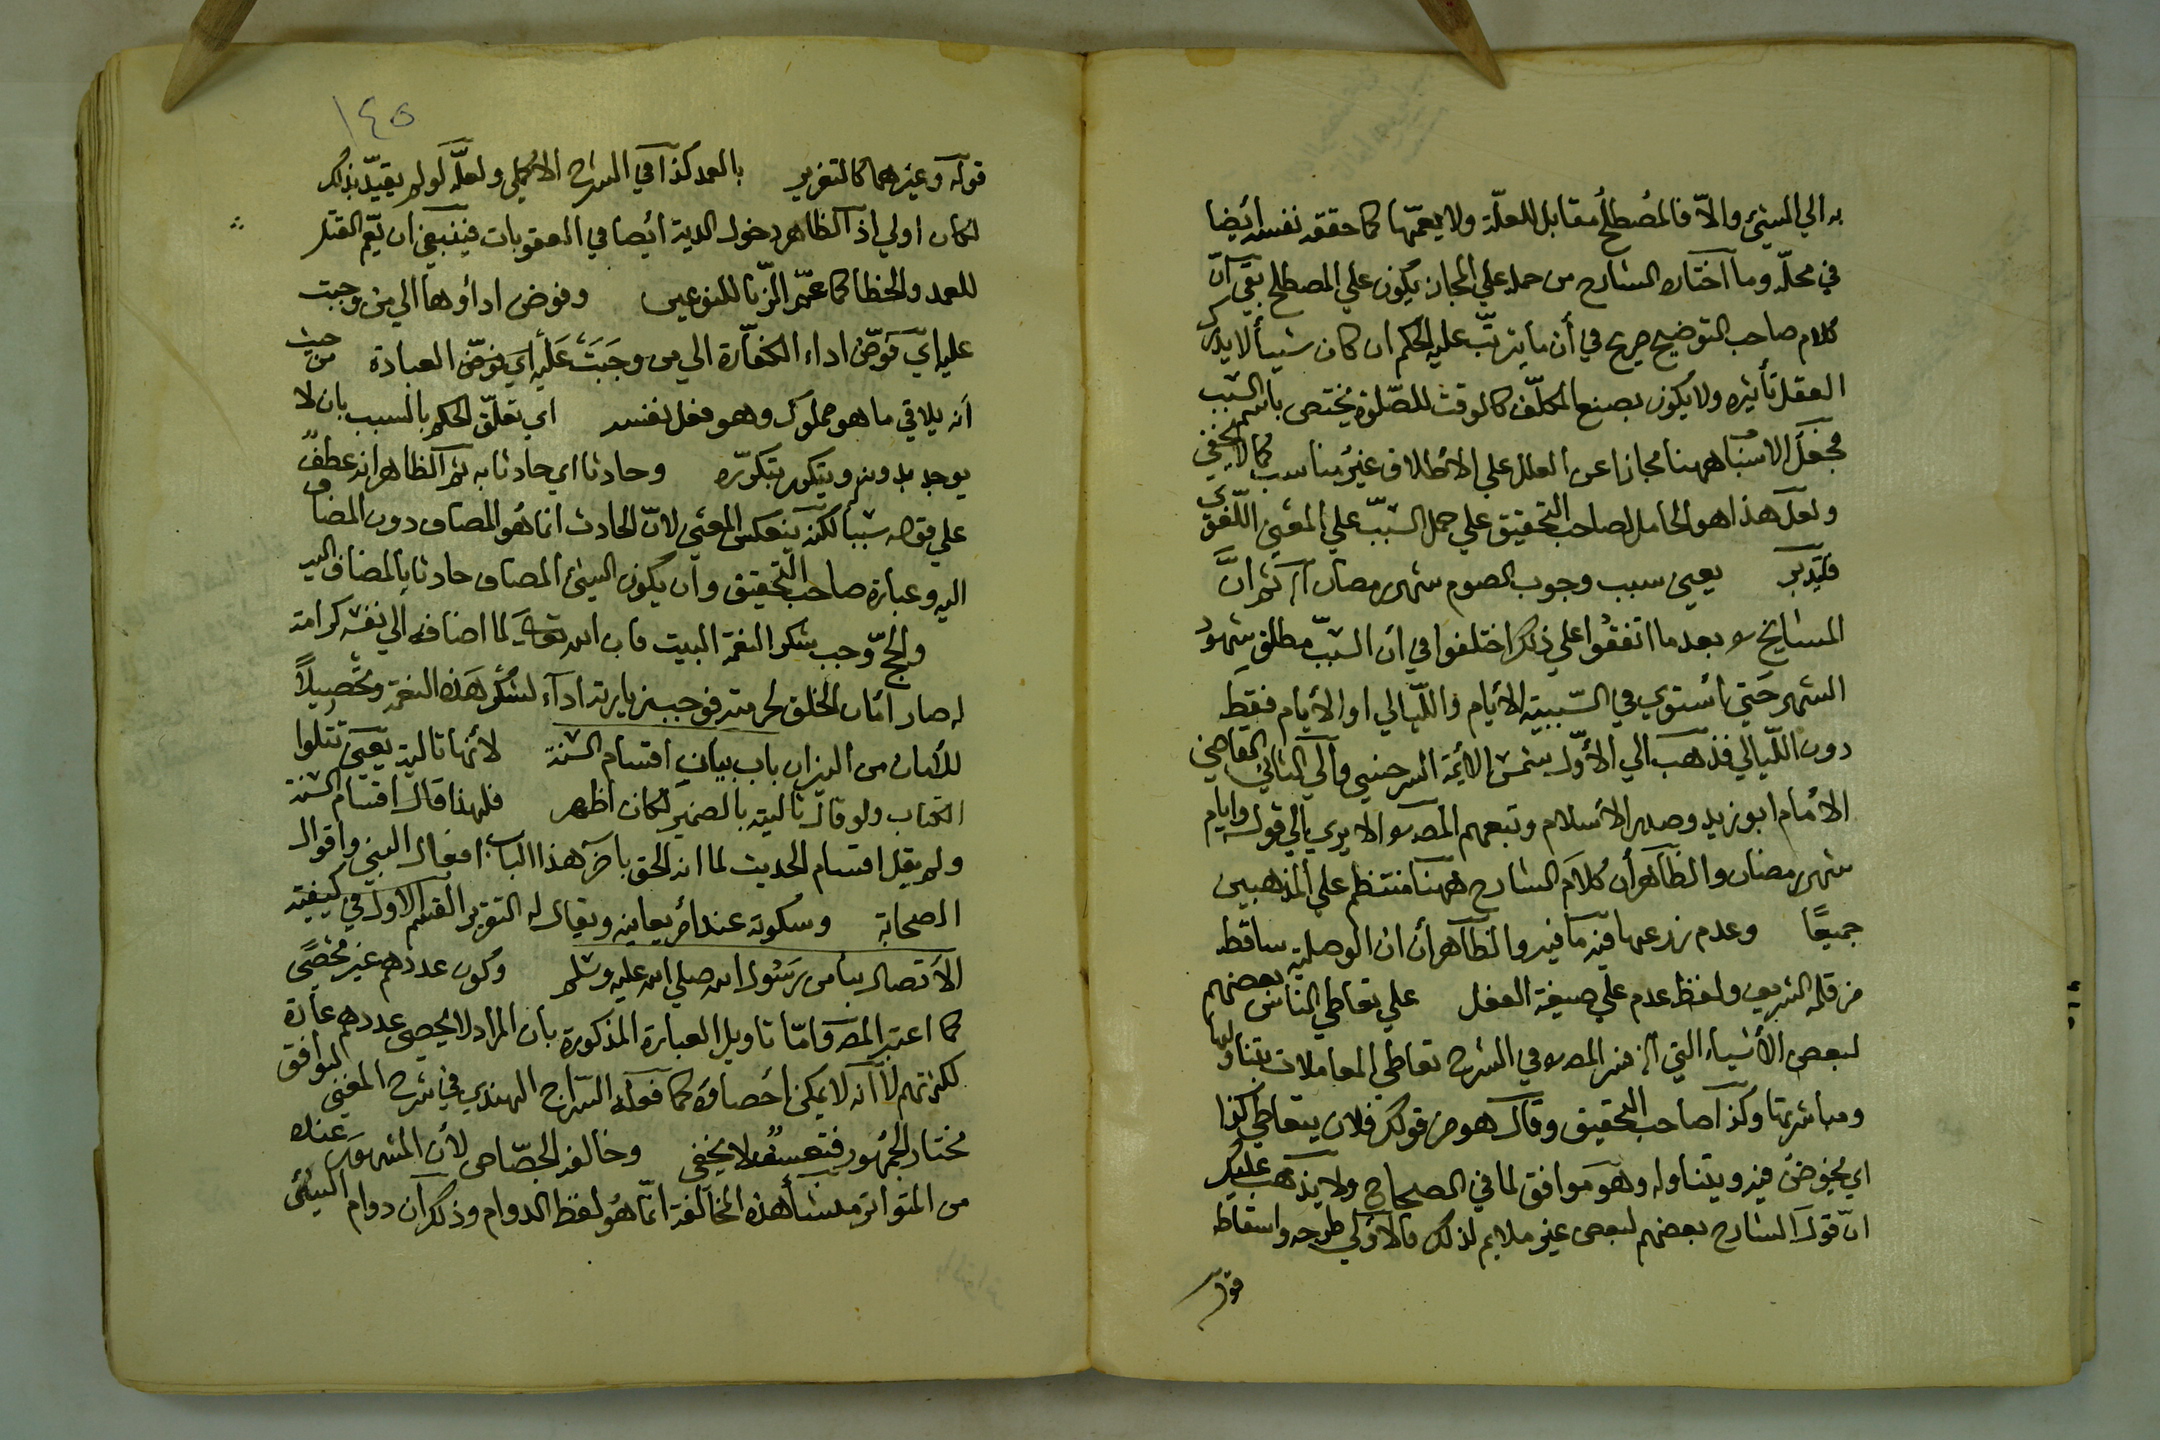 به الي الشيئ والّا فالمصطلح مقابل للعلّة ولا يعمّها كما حققه نفسه ايضا
في محلّه وما اختاره الشارح من حمله علي المجاز يكون علي المصطلح بقي انّ
كلام صاحب التوضيح صريح في أن ما يترتّب عليه الحكم ان كان شيأ لا يدرك
العقل تأثيره ولا يكون بصنع المكلّف كالوقت للصّلوة يختص باسم السّبب
فجعل الاسباب ههنا مجازا عن العلل علي الاطلاق غير مناسب كما لا يخفي
ولعل هذا هو الحامل لصاحب التحقيق علي حمل السّبب علي المعني اللّغوي
فليّدبّر يعيى سبب وجوب الصوم شهر رمضان آه ثم انّ
المشايخ بعد ما اتفقوا علي ذلك اختلفوا في ان السّبب مطلق شهود
الشهر حتي استوي في السّببيّة الأيام والليالي او الأيام فقط
دون الليالي فذهب الي الأوّل شمس الأيمّة السرخسي والي الثاني القاضي
الامام ابو زيد وصدر الاسلام وتبعهم المصـ الا يري الي قوله وايام
شهر رمضان والظاهر أن كلام الشارح ههنا منتظم علي المذهبين
جميعًا وعدم زرعها فيه ما فيه والظاهر أن ان الوصلية ساقط
من قلمه الشريف ولفظ عدم علي صيغة الفعل علي تعاطي الناس بعضهم
لبعض الأشياء التي الخ فسر المصـ في الشرح تعاطي المعاملات بتناولها
ومباشرتها وكذا صاحب التحقيق وقال هو من قولك فلان يتعاطي كذا
اي يخوض فيه ويتناوله وهو موافق لما في الصحاح ولا يذهب عليك
انّ قول الشارح بعضهم لبعض غير ملايم لذلك فالأولي طرحه واسقاطه
قوله
١٤٥
قوله وغيرهما كالتغرير بالعمد كذا في الشرح الاكملي ولعلّه لو لم يقيّد بذلك
لكان اولي اذ الظاهر دخول الدية ايضا في العقوبات فينبغي ان يعّم القتل
للعمد والخطا كما عمّم الزّنا للنوعين وفوض اداؤها الي من وجبت
عليه ايّ فوّض اداء الكفّارة الي من وجبت عليه اي فوض العبادة من حيث
انه يلاقي ما هو مملوك وهو فعل نفسه اي تعلّق الحكم بالسبب بان لا
يوجد بدونه ويتكرر بتكرّره وحادثا اي حادثا به ثم الظاهر انه عطف
علي قوله سببا لكنه ينعكس المعني لانّ الحادث انما هو المضاف دون المضاف
اليه وعبارة صاحب التحقيق وان يكون الشيئ المضاف حادثا بالمضاف اليه
والحجّ وجب شكرا لنعمة البيت فان الله تعالي لما اضافه الي نفسه كرامة
له صار امان الخلق لحرمته فوجب زيارته اداء لشكر هذه النعمة وتحصيلاً
للأمان من النيران باب بيان اقسام السّنة لأنها تالية يعني تتلوا
الكتاب ولو قال تاليته بالضمير لكان اظهر فلهذا قال اقسام السّنة
ولم يقل اقسام الحديث لما انه الحق باخر هذا الباب افعال النبي واقوال
الصحابة وسكوته عند امر يعاينه ويقال له التقرير القسم الاول في كيفية
الاتصال بنا من رسول الله صلي الله عليه وسلم وكون عددهم غير محصي
كما اعتبر المصـ وامّا تاويل العبارة المذكورة بان المراد لا يحصي عددهم عادة
لكثرتهم لا انه لا يمكن احصاؤه كما فعله السّراج الهندي في شرح المغني ليوافق
مختار الجمهور فتعسف لا يخفي وخالفه الجصّاص لأن المشهور عنده
من المتواتر منشأ هذه المخالفة انمّا هو لفظ الدوام وذكر ان دوام الشيئ